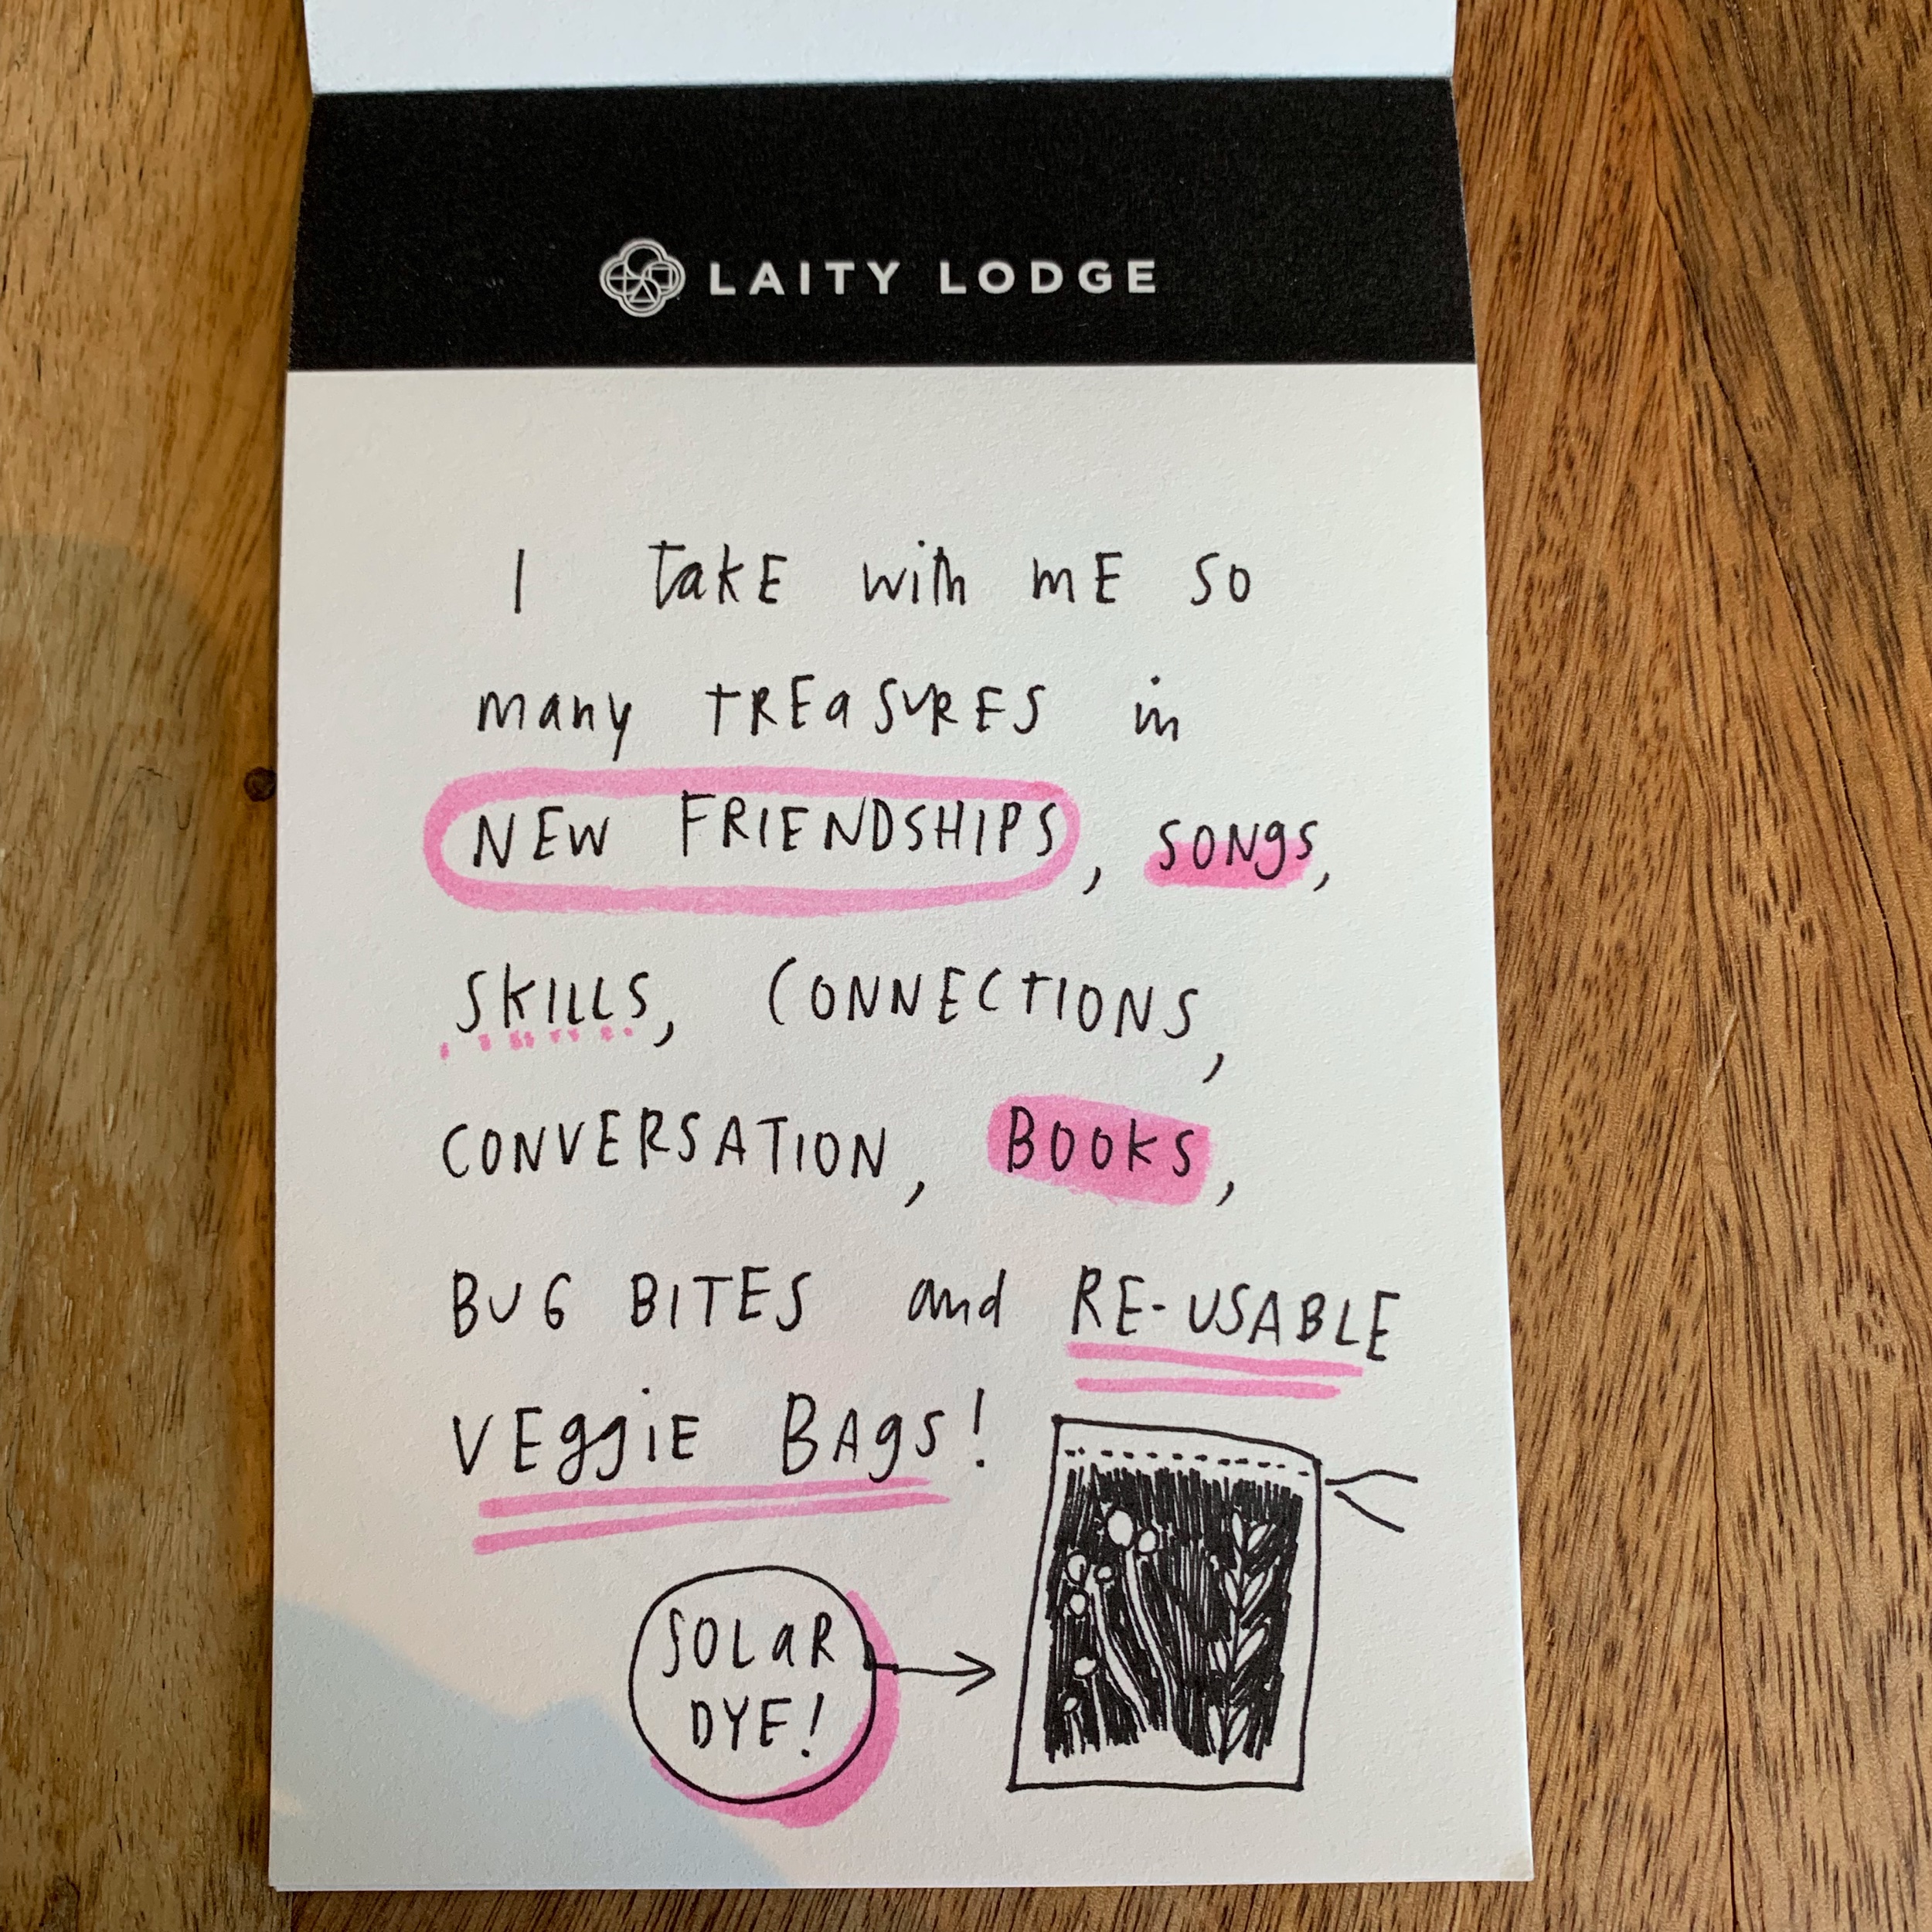 LAITY LODGE
I TakE with mE so
many TREaSURES in
NEW FRIENDSHIPS, SONgS,
SKILLS, CONNECTIONS,
CONVERSATION, BOOKS,
BUG BITES and RE-USABLE
VEggiE BAgS!
SOLaR
DYE!